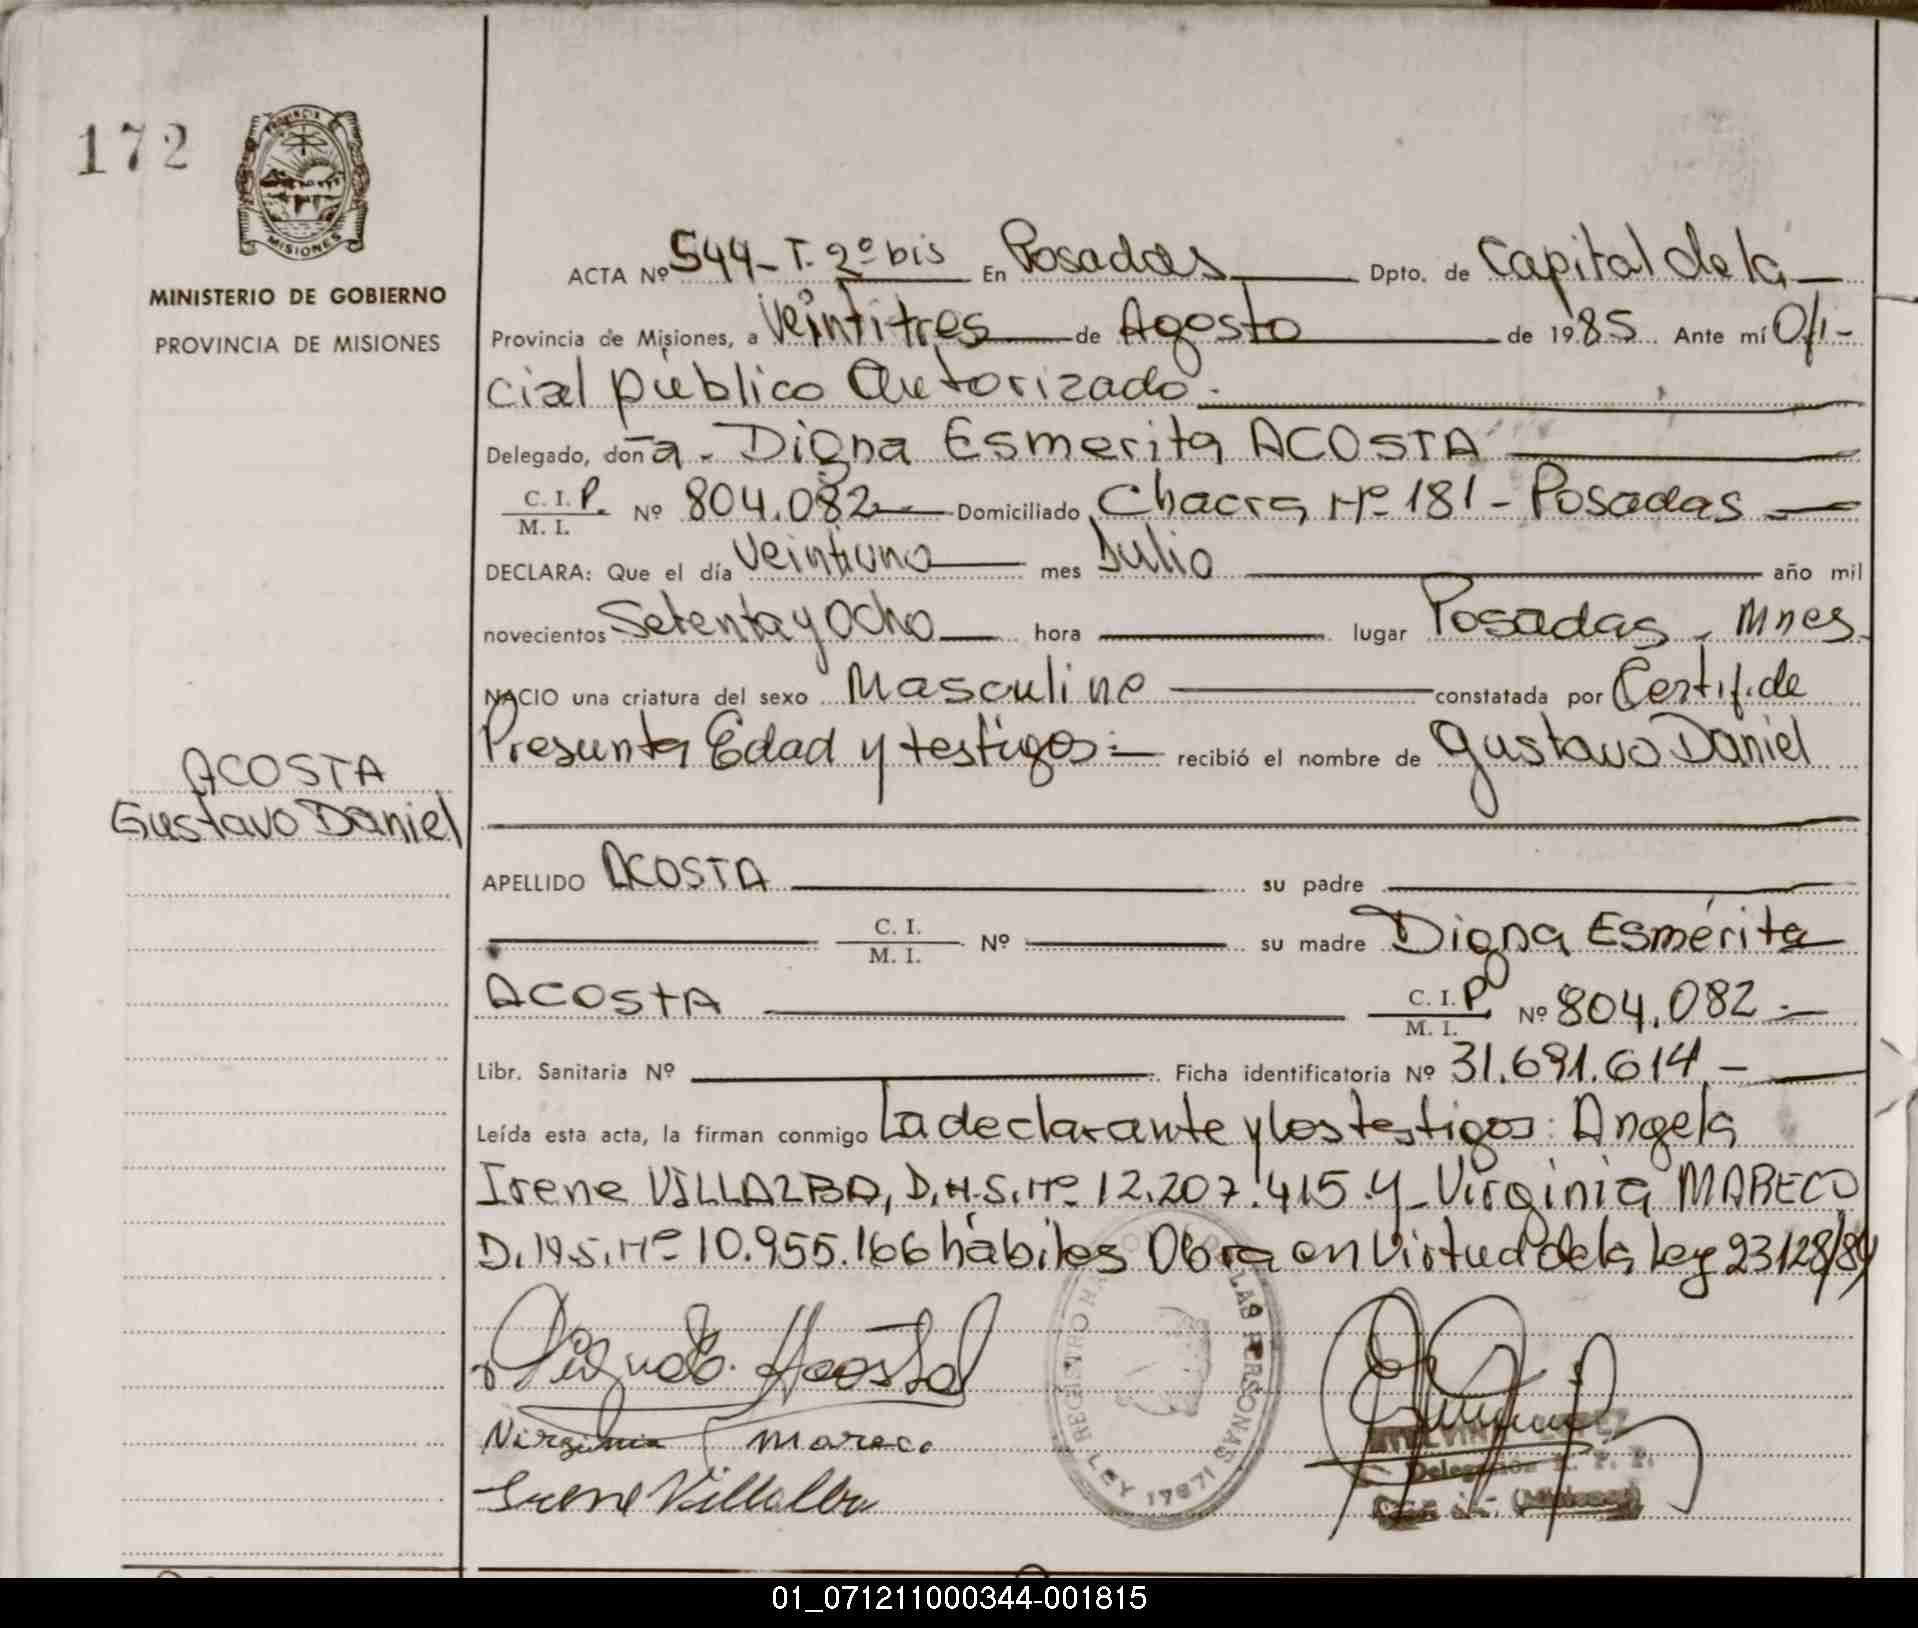 172
PROVINCIA
MISIONES
MINISTERIO DE GOBIERNO
PROVINCIA DE MISIONES
ACTA Nº 544 - T. 2º bis En Posadas Dpto. de Capital de la
Provincia de Misiones, a Veintitres de Agosto de 1985 Ante mí Ofi-
cial público Autorizado.
Delegado, doña - Digna Esmerita ACOSTA
C. I. P. Nº 804.082 Domiciliado Chacra Nº 181 - Posadas
M. I.
DECLARA: Que el día Veintiuno mes Julio año mil
novecientos Setenta y Ocho hora lugar Posadas - Mnes.
NACIO una criatura del sexo Masculino constatada por Certif. de
Presunta Edad y testigos = recibió el nombre de Gustavo Daniel
ACOSTA
Gustavo Daniel
APELLIDO ACOSTA su padre
C. I. M. I. Nº su madre Digna Esmérita
ACOSTA C. I. P M. I. Nº 804.082 =
Libr. Sanitaria Nº Ficha identificatoria Nº 31.691.614 -
Leída esta acta, la firman conmigo La declarante y los testigos: Angela
Irene VILLALBA, D.N.I. Nº 12.207.415 y Virginia MARECO
D.N.I. Nº 10.955.166 hábiles Obra en Virtud de la Ley 23128/84
Digna E. Acosta
Virginia Mareco
Irene Villalba
REGISTRO LAS PERSONAS
LEY 17671
Delegación
(Misiones)
01_071211000344-001815